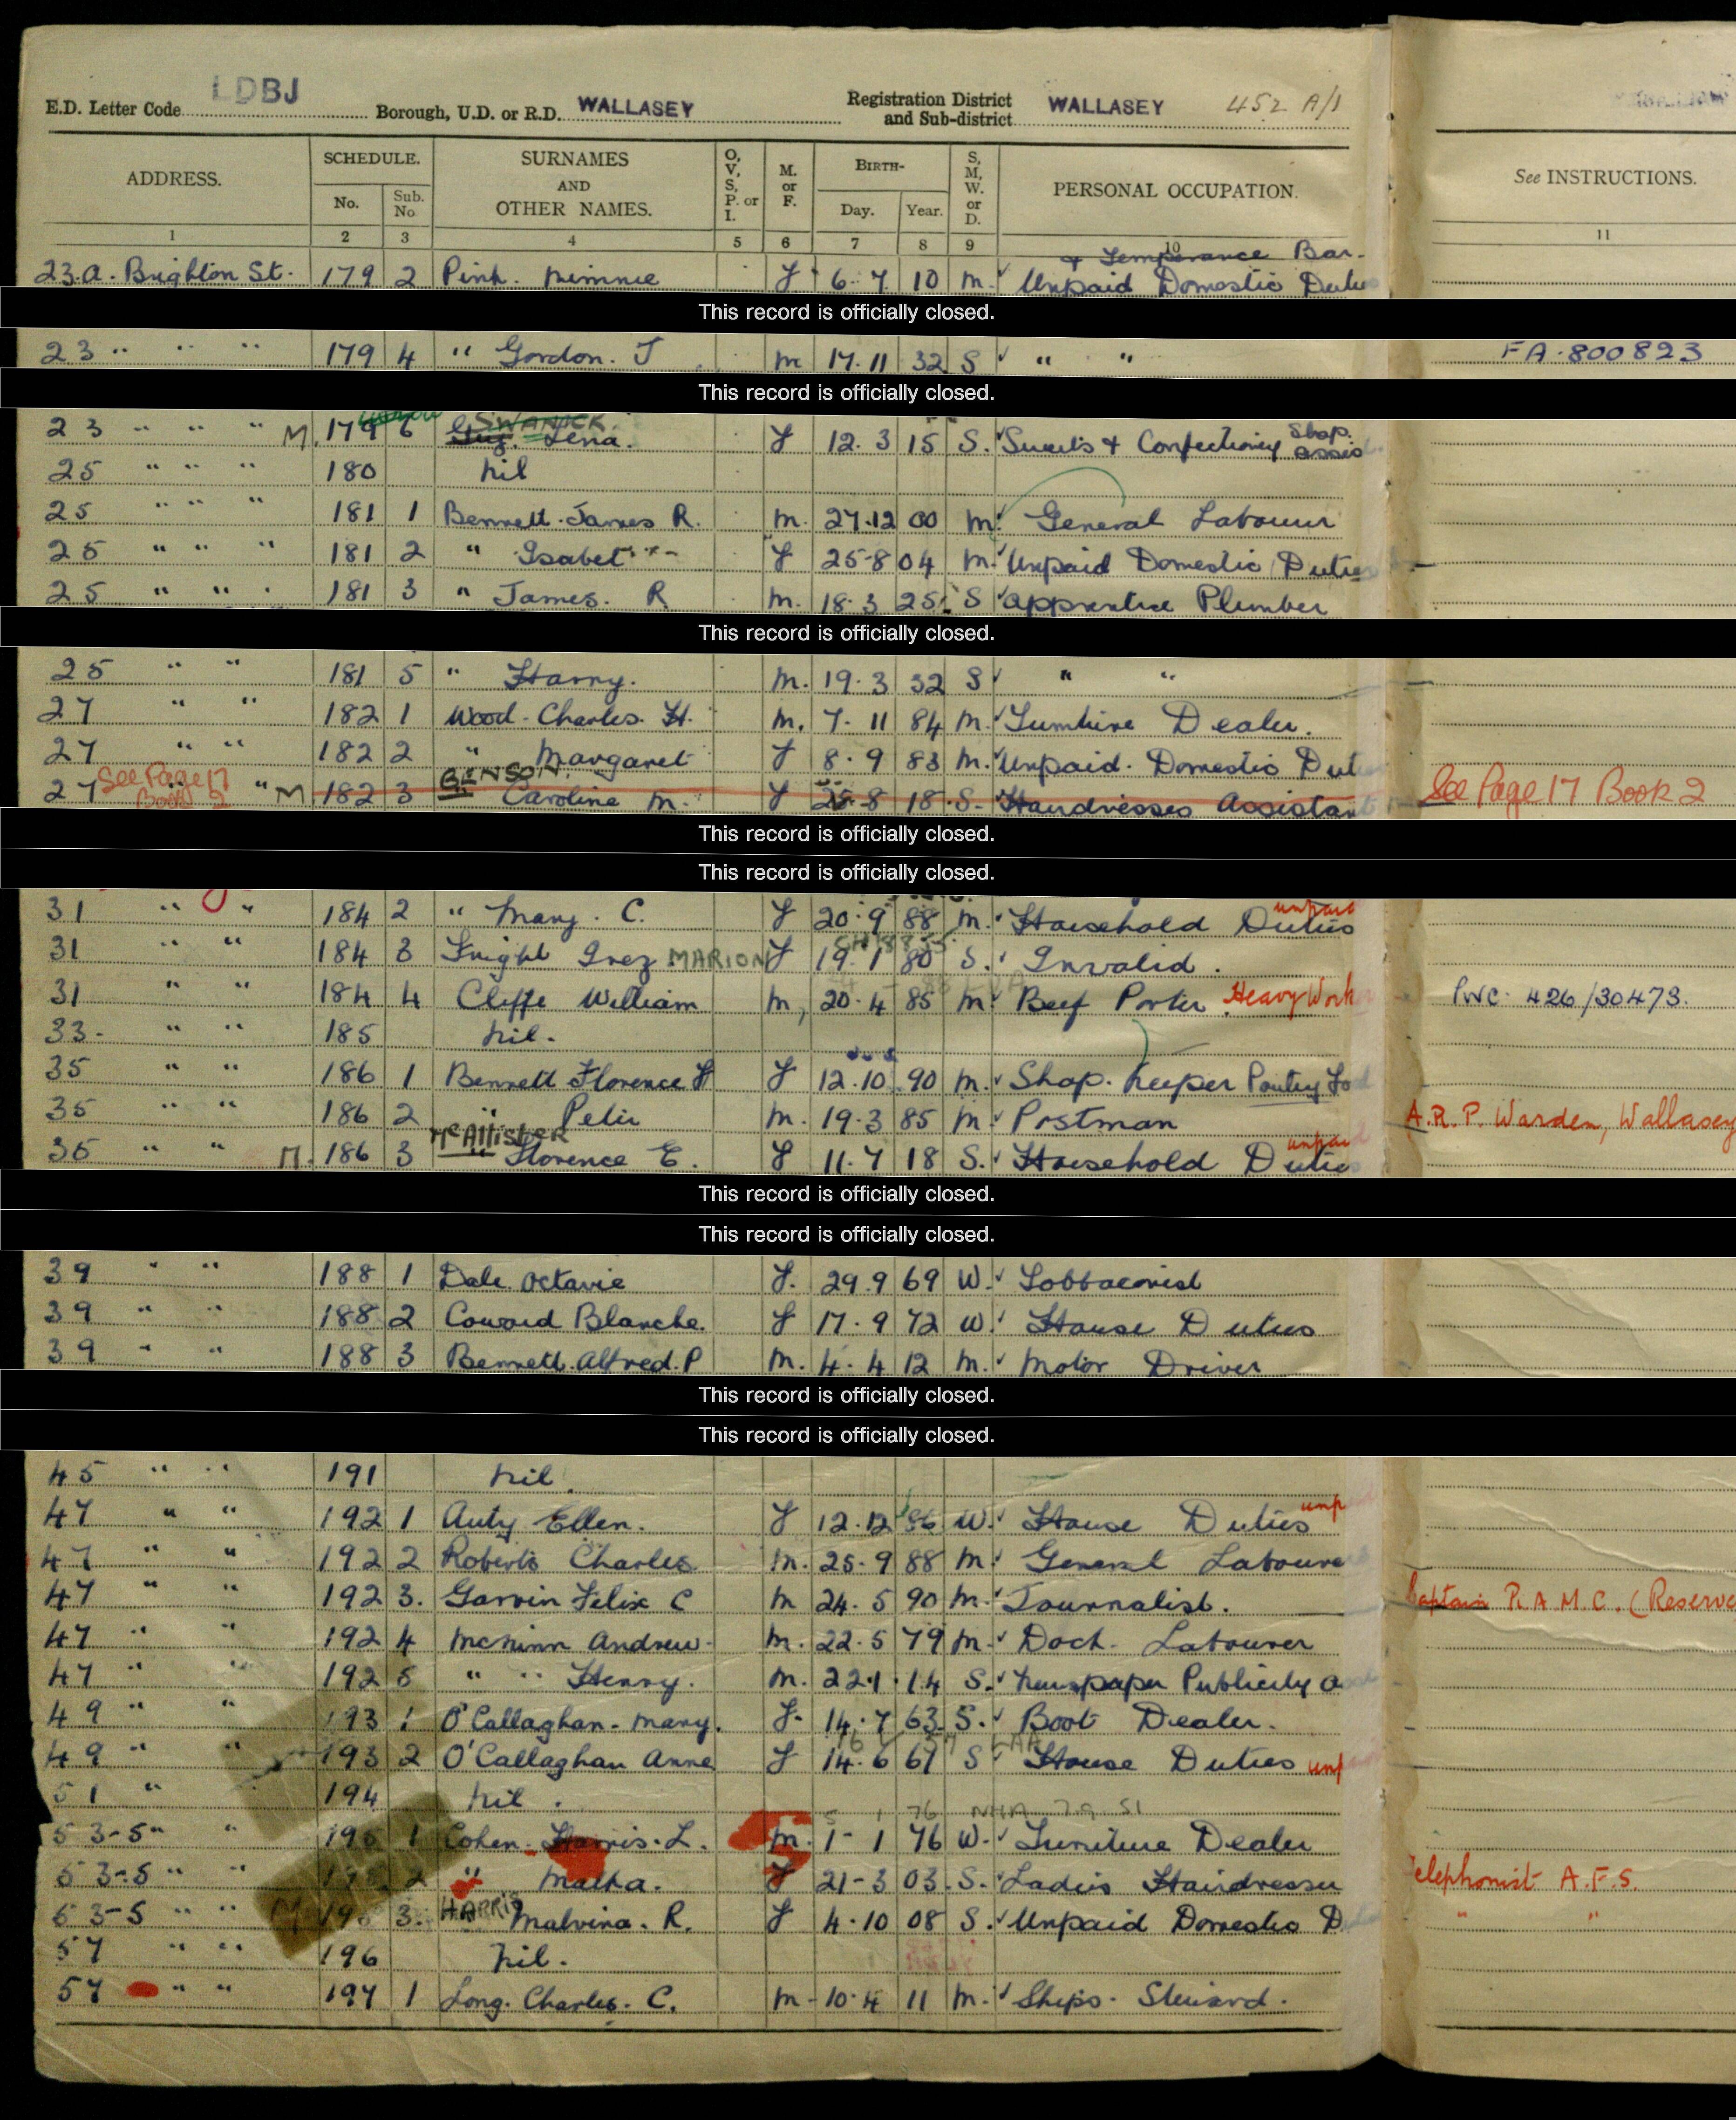 LDBJ
E.D. Letter Code Borough, U.D. or R.D. WALLASEY Registration District and Sub-district WALLASEY 452 A/1
ADDRESS. SCHEDULE. No. Sub. No. SURNAMES AND OTHER NAMES. O, V, S, P. or I. M. or F. BIRTH- Day. Year. S, M, W. or D. PERSONAL OCCUPATION. See INSTRUCTIONS.
1 2 3 4 5 6 7 8 9 10 11
& Temperance Bar.
23.a. Brighton St. 179 2 Pink. Minnie F 6.7 10 M. Unpaid Domestic Duties
This record is officially closed.
23 " " " 179 4 " Gordon. J M 17.11 32 S " " FA.800823
This record is officially closed.
23 " " " M. 179 6 SWANICK. Lena. F 12.3 15 S. Sweets & Confectionery Shop. assist
25 " " " 180 Nil
25 " " " 181 1 Bennett. James R. M. 27.12 00 M. General Labour
25 " " " 181 2 " Isabel F 25-8 04 M. Unpaid Domestic Duties
25 " " " 181 3 " James. R M. 18.3 25 S apprentice Plumber
This record is officially closed.
25 " " 181 5 " Harry. M. 19.3 32 S " "
27 " " 182 1 Wood. Charles. H. M. 7.11 84 M. Furniture Dealer.
27 " " 182 2 " Margaret F 8.9 83 M. Unpaid. Domestic Dut
27 See Page 17 Book 2 " M 182 3 BENSON. Caroline M. F 25.8 18. S. Hairdresses Assistant See Page 17 Book 2
This record is officially closed.
This record is officially closed.
31 " " 184 2 " Mary. C. F 20.9 88 M. Household Duties unpaid
31 " " 184 3 Inez MARION F 19.1 80 S. Invalid.
31 " " 184 4 Cliffe William M, 20.4 85 M. Beef Porter. Heavy Work PWC. 426/30473.
33. " " 185 Nil.
35 " " 186 1 Bennett Florence H F 12.10 90 M. Shop. Keeper
35 " " 186 2 " Peter M. 19.3 85 M. Postman A.R.P. Warden, Wallasey
35 " " M. 186 3 McAllister Florence E. F 11.7 18 S. Household Duties unpaid
This record is officially closed.
This record is officially closed.
39 " " 188 1 Dale. Octavie F. 29.9 69 W. Tobbaconist
39 " " 188 2 Coward Blanche. F 17.9 72 W. House Duties
39 " " 188 3 Bennett. Alfred. P M. 4.4 12 M. Motor Driver
This record is officially closed.
This record is officially closed.
45 " " 191 Nil.
47 " " 192 1 Auty Ellen. F 12.12 86 W. House Duties unp
47 " " 192 2 Roberts Charles M. 25.9 88 M. General Laboure
47 " " 192 3. Garvin Felix C M 24.5 90 M. Journalist. Captain R.A.M.C. (Reserve
47 " " 192 4 McMinn Andrew. M. 22.5 79 M. Dock. Labourer
47 " " 192 5 " " Henry. M. 22.1.14 S. Newspaper Publicity a
49 " " 193 1 O'Callaghan. Mary. F. 14.7 63 S. Boot Dealer.
49 " " 193 2 O'Callaghan Anne F 14.6 67 S House Duties unp
51 " 194 Nil.
53-5 " " 195 1 Cohen. Harris. L. M. 1-1 76 W. Furniture Dealer
53-5 " " 195 2 " Malka. F 21-3 03. S. Ladies Hairdresser Telephonist A.F.S.
53-5 " " M 195 3. HARRIS Malvina. R. F 4.10 08 S. Unpaid Domestic D " "
57 " " 196 Nil.
57 " " 197 1 Long. Charles. C. M 10.4 11 M. Ships. Steward.